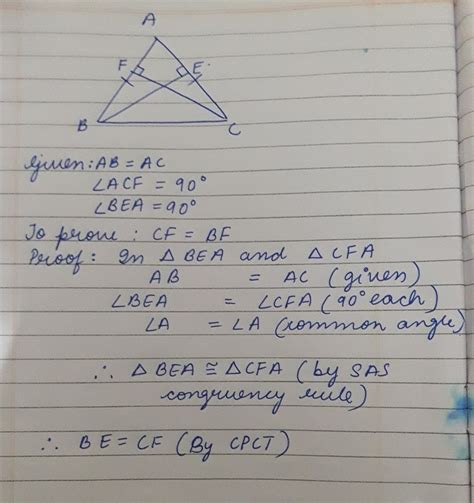 A
F
E
B
C
Given: AB = AC
∠ACF = 90°
∠BEA = 90°
To prove : CF = BF
Proof: In △ BEA and △ CFA
AB = AC (given)
∠BEA = ∠CFA (90° each)
∠A = ∠A (common angle)
∴ △ BEA ≅ △CFA (by SAS
congruency rule)
∴ BE = CF (By CPCT)